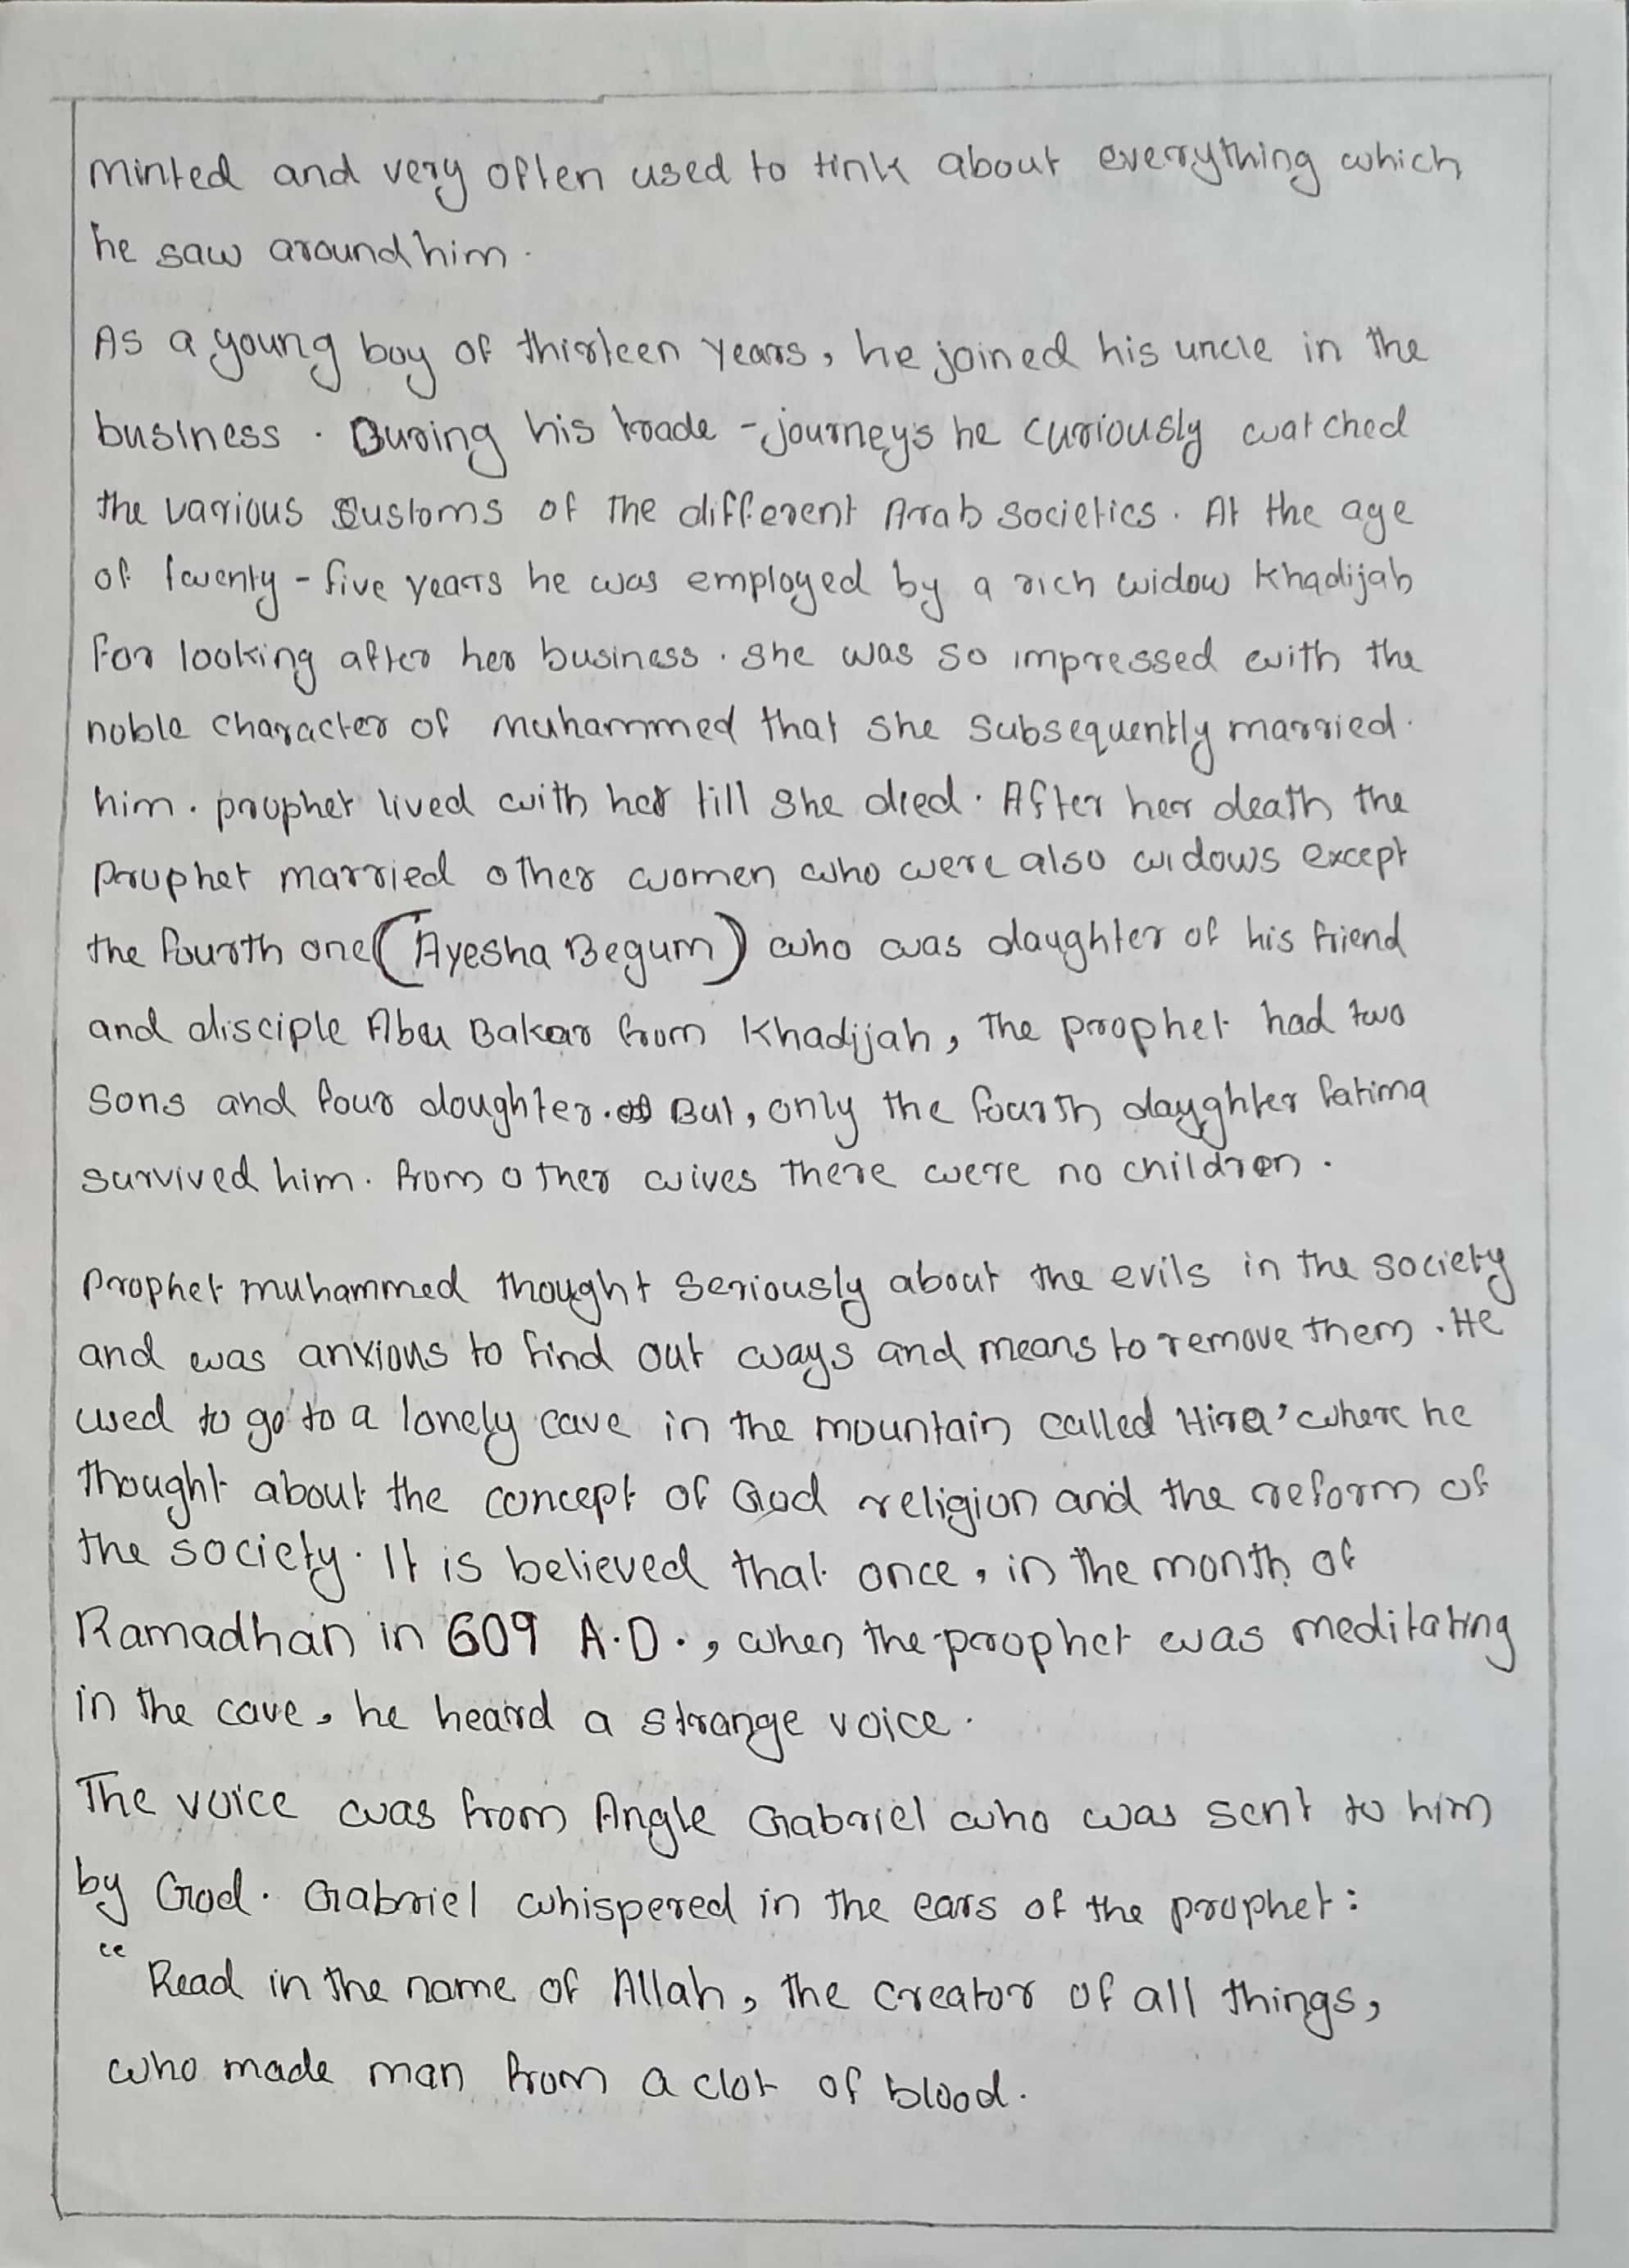 minted and very often used to tink about everything which
he saw around him.
As a young boy of thirteen years, he joined his uncle in the
business. During his trade - journeys he curiously watched
the various Customs of the different Arab societics. At the age
of twenty - five years he was employed by a rich widow Khadijah
for looking after her business. she was so impressed with the
noble character of Muhammed that she subsequently married.
him. prophet lived with her till she died. After her death the
Prophet married other women who were also widows except
the fourth one (Ayesha Begum) who was daughter of his friend
and disciple Abu Bakar from Khadijah, The prophet had two
sons and four doughter. But, only the fourth dayghter fatima
survived him. from other wives there were no children.
Prophet muhammed thought seriously about the evils in the society
and was anxious to find out ways and means to remove them. He
used to go to a lonely cave in the mountain called Hira' where he
thought about the concept of God religion and the reform of
the society. It is believed that once, in the month of
Ramadhan in 609 A.D., when the prophet was meditating
in the cave, he heard a strange voice.
The voice was from Angle Gabriel who was sent to him
by God. Gabriel whispered in the ears of the prophet:
“Read in the name of Allah, the creator of all things,
who made man from a clot of blood.